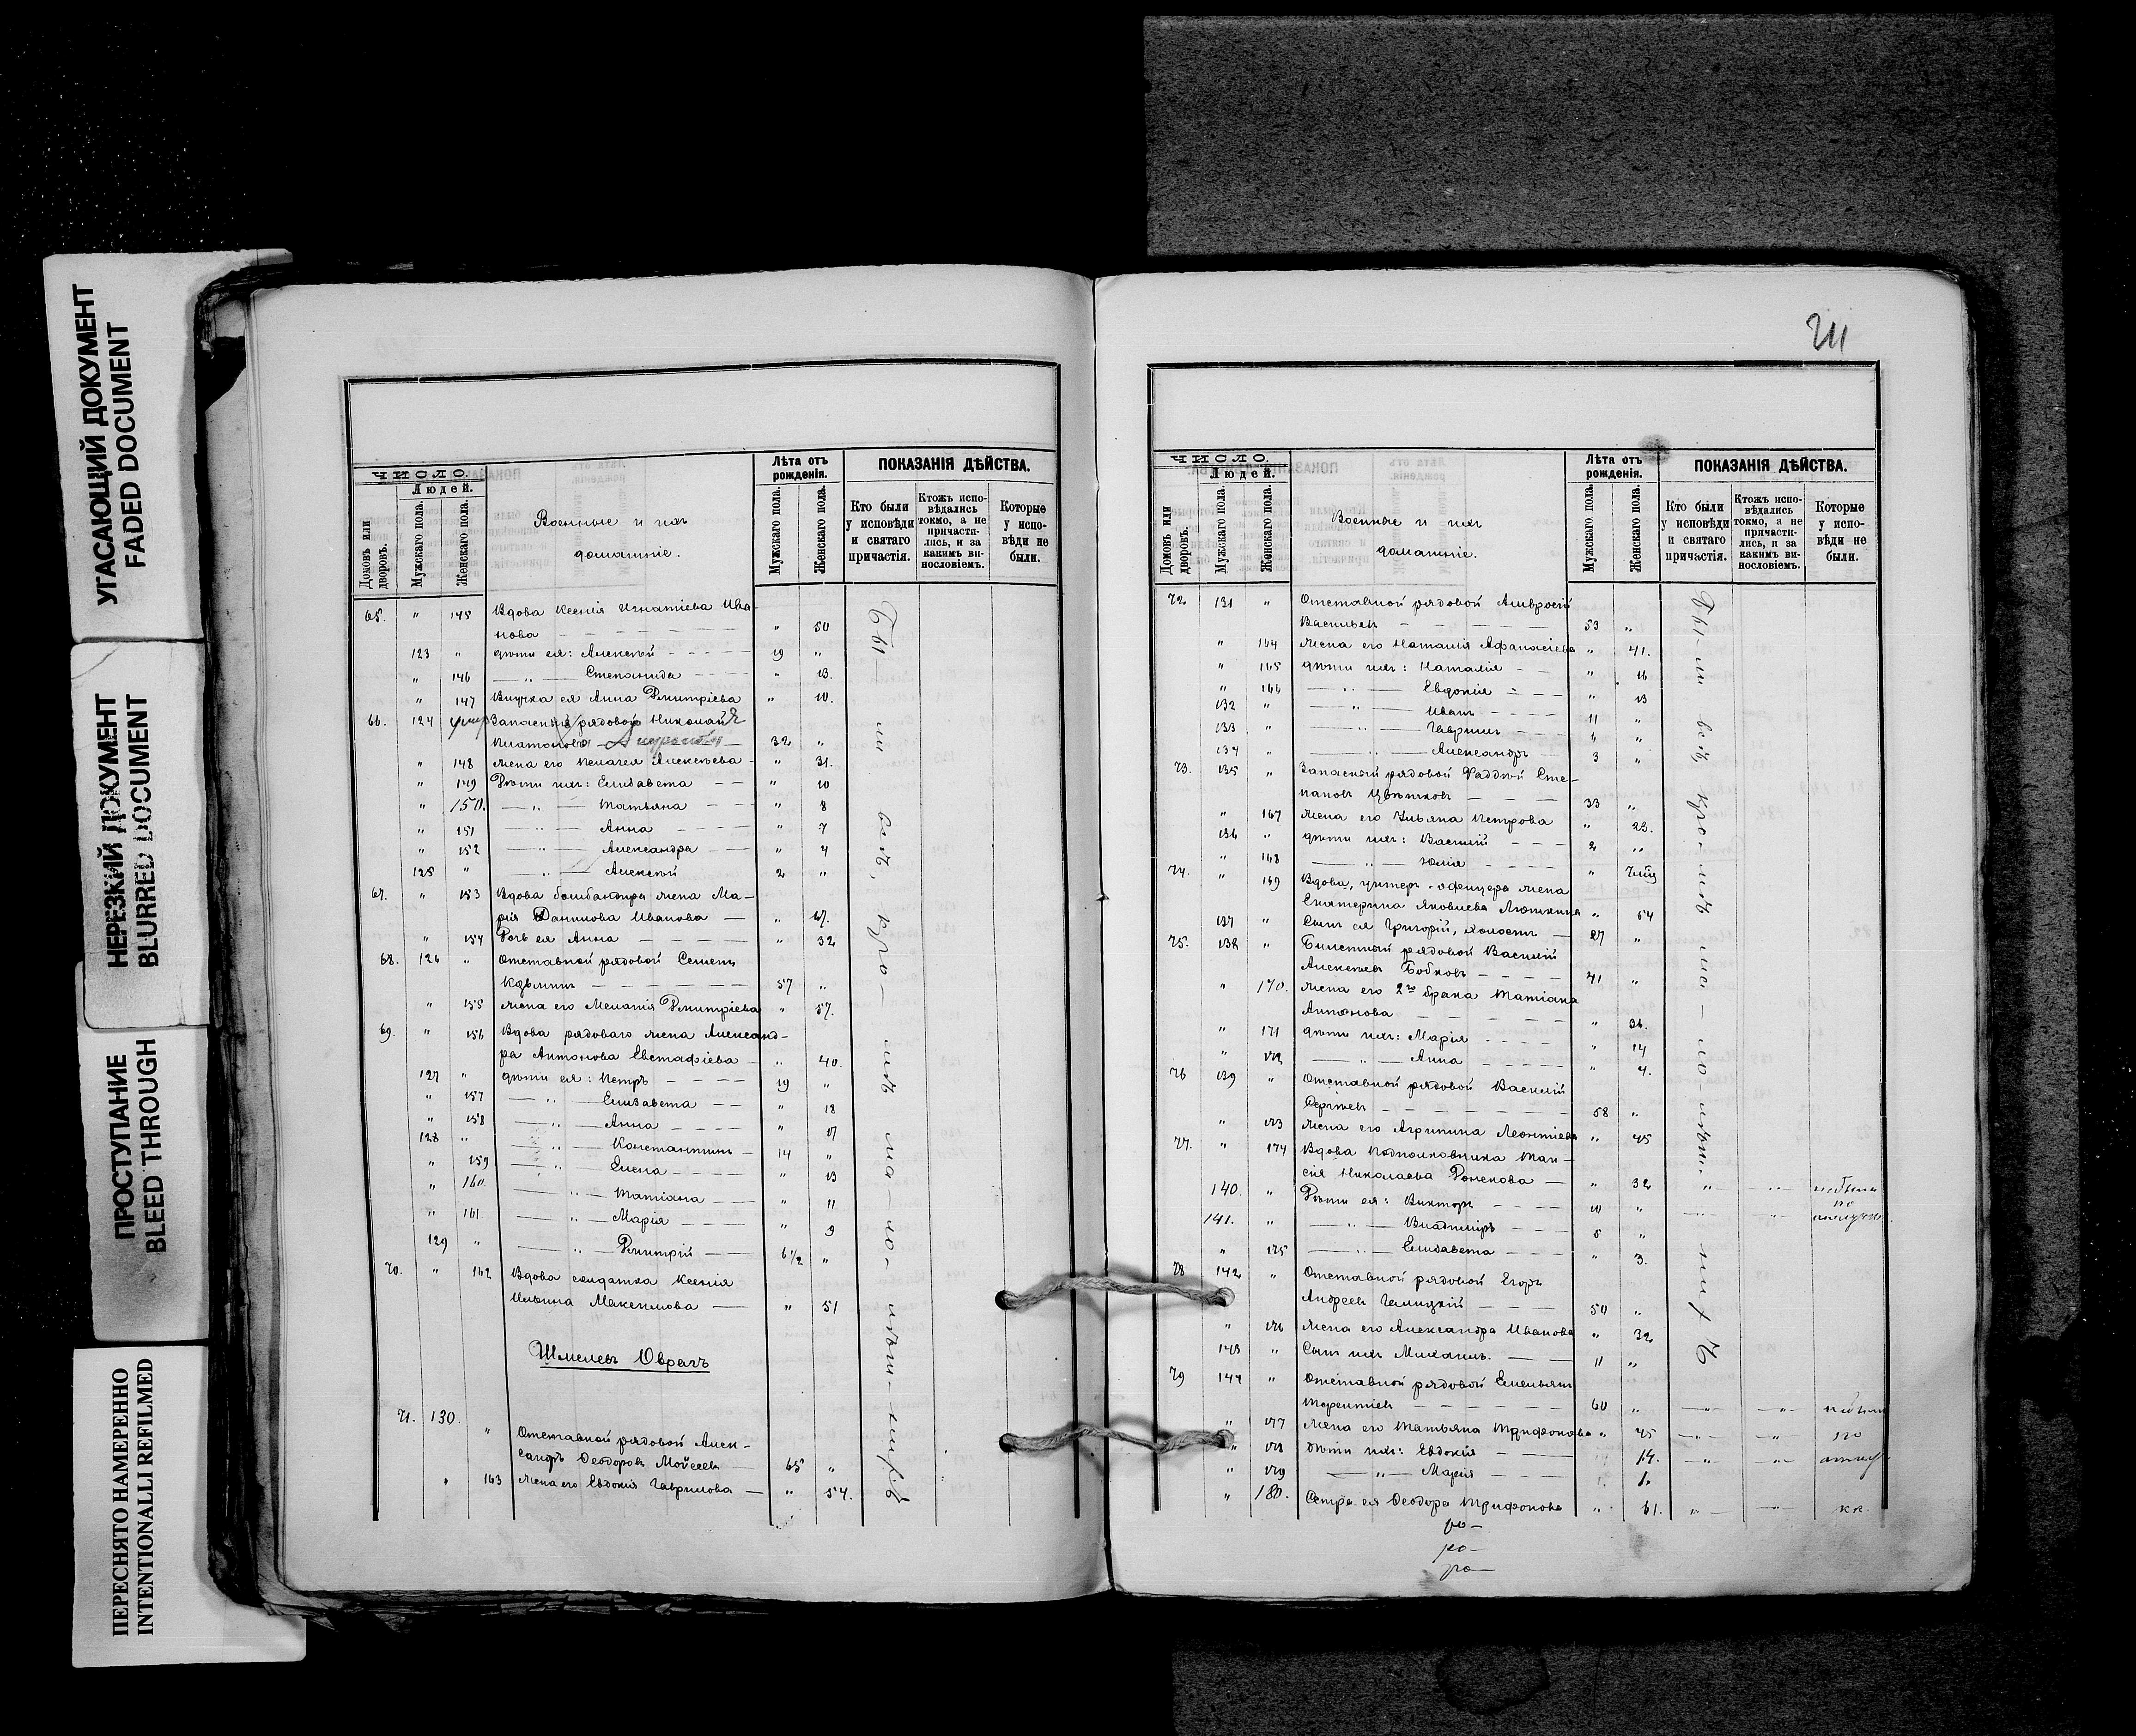 УГАСАЮЩИЙ ДОКУМЕНТ
FADED DOCUMENT
НЕРЕЗКИЙ ДОКУМЕНТ
BLURRED DOCUMENT
ПРОСТУПАНИЕ
BLEED THROUGH
ПЕРЕСНЯТО НАМЕРЕННО
INTENTIONALLI REFILMED
ЧИСЛО.
Людей.
Домовъ или дворовъ.
Мужскаго пола.
Женскаго пола.
Военные и ихъ
домашніе.
Лѣта отъ рожденія.
Мужскаго пола.
Женскаго пола.
ПОКАЗАНІЯ ДѢЙСТВА.
Кто были у исповѣди и святаго причастія.
Ктожъ исповѣдались токмо, а не причастились, и за какимъ винословіемъ.
Которые у исповѣди не были.
65. " 145 Вдова Ксенія Игнатіева Ива-
нова — " 50
123 " дѣти ея: Алексѣй — 19 "
" 146 — " — Степанида — " 13.
" 147 Внучка ея Анна Дмитріева " 10.
66. 124 Запасный рядовой Николай
Платоновъ — 32 "
" 148 Жена его Пелагея Алексѣева " 31.
" 149 Дѣти ихъ: Елизавета — " 10
" 150. — " — Татьяна — " 8
" 151 — " — Анна — " 7
" 152 — " — Александра — " 4
125 " — " — Алексѣй 2 "
67. " 153 Вдова бомбандира жена Ма-
рія Данилова Иванова — " 67.
" 154 Дочь ея Анна — " 32
68. 126 " Отставной рядовой Семенъ
— 57 "
" 155 Жена его Меланія Дмитріева " 57.
69. " 156 Вдова рядоваго жена Александ-
ра Антонова Евстафіева — " 40.
127 " дѣти ея: Петръ — 19 "
" 157 — " — Елизавета — " 18
" 158 — " — Анна — " 17
128 " — " — Константинъ — 14 "
" 159 — " — Елена — " 13
" 160 — " — Татіана — " 11
" 161 — " — Марія — " 9
129 " — " — Дмитрій — 6 1/2 "
70. " 162 Вдова солдатка Ксенія
Ильина Максимова — " 51
Шмелевъ Оврагъ
71. 130. " Отставной рядовой Алек-
сандръ Ѳеодоровъ Мойсеевъ — 65 "
" 163 Жена его Евдокія Гаврилова — " 54.
Бы — ли всѣ, кро — мѣ ма — ло — лѣт —
211
ЧИСЛО.
Людей.
Домовъ или дворовъ.
Мужскаго пола.
Женскаго пола.
Военные и ихъ
домашніе.
Лѣта отъ рожденія.
Мужскаго пола.
Женскаго пола.
ПОКАЗАНІЯ ДѢЙСТВА.
Кто были у исповѣди и святаго причастія.
Ктожъ исповѣдались токмо, а не причастились, и за какимъ винословіемъ.
Которые у исповѣди не были.
72. 131 " Отставной рядовой Амвросій
Васильевъ — 53 "
" 164 Жена его Наталія Афанасіева " 41.
" 165 дѣти ихъ: Наталія — " 16
" 166 — " — Евдокія — " 13
132 " — " — Иванъ — 11 "
133 " — " — Гавріилъ — "
134 " — " — Александръ — 3 "
73. 135 " Запасный рядовой Фаддѣй Сте-
пановъ Цвѣтковъ — 33 "
" 167 Жена его Ульяна Петрова " 22.
136 " дѣти ихъ: Василій — 2 "
" 168 — " — Юлія — "
74. " 169 Вдова, унтеръ-офицера жена
Екатерина Яковлева " 54
137 " Сынъ ея Григорій, холостъ — 27 "
75. 138 " Билетный рядовой Василій
Алексѣевъ Бобковъ — 41 "
" 170. Жена его 2го брака Татіана
Антонова — " 36.
" 171 дѣти ихъ: Марія — " 14
" 172 — " — Анна — " 4.
76 139 " Отставной рядовой Василій
Сергѣевъ — 58 "
" 173 Жена его Агрипина Леонтіева " 45
77. " 174 Вдова Подполковника Таи-
сія Николаева — " 32 " — " —
140. " Дѣти ея: Викторъ — 10 "
141. " — " — Владиміръ — 5 "
" 175 — " — Елизавета — " 3.
78 142 " Отставной рядовой Егоръ
Андреевъ Галицкій — 50 "
" 176 Жена его Александра Иванова " 32
143 " Сынъ ихъ Михаилъ. — 11 "
79 144 " Отставной рядовой Емельянъ
Терентіев — 60 "
" 177 Жена его Татьяна Трифонова " 45
" 178 Дѣти ихъ: Евдокія — 14.
" 179 — " — Марія —
" 180. Сестра ея Ѳеодора Трифонова " 61.
Бы — ли всѣ, кро — мѣ ма — ло — лѣтн.